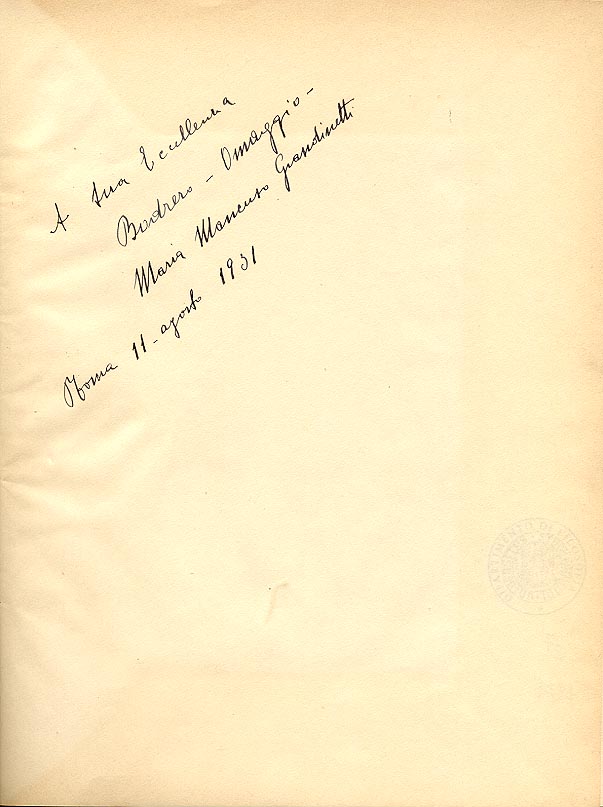 A Sua Eccellenza
Bodrero - Omaggio -
Maria Mancuso Grandinetti
Roma 11 - agosto 1931
DIPARTIMENTO DI